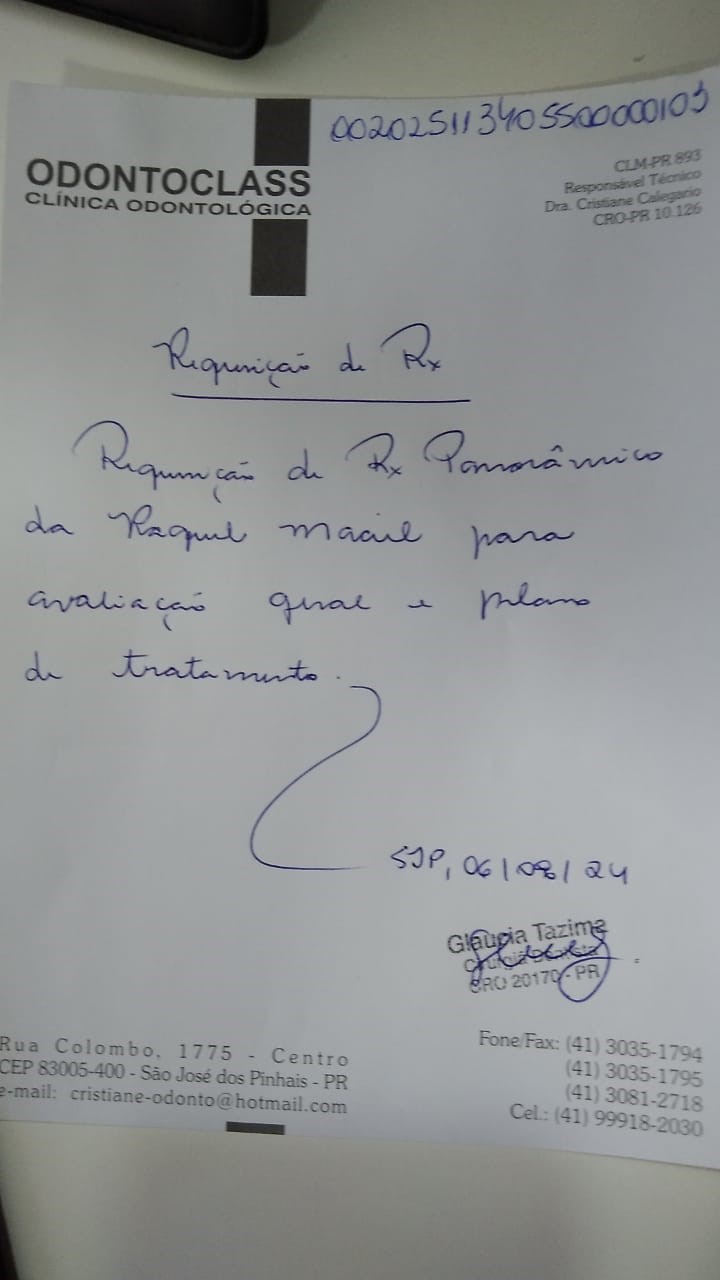 002025113405500000103
ODONTOCLASS
CLÍNICA ODONTOLÓGICA
CLM-PR 893
Responsável Técnico
Dra. Cristiane Calegario
CRO-PR 10.126
Requisição de Rx
Requisição de Rx Panorâmico
da Raquel Maciel para
avaliação geral e plano
de tratamento.
SJP, 06/08/24
Gláucia Tazima
Cirurgiã Dentista
CRO 20170 - PR
Rua Colombo, 1775 - Centro
CEP 83005-400 - São José dos Pinhais - PR
e-mail: cristiane-odonto@hotmail.com
Fone/Fax: (41) 3035-1794
(41) 3035-1795
(41) 3081-2718
Cel.: (41) 99918-2030